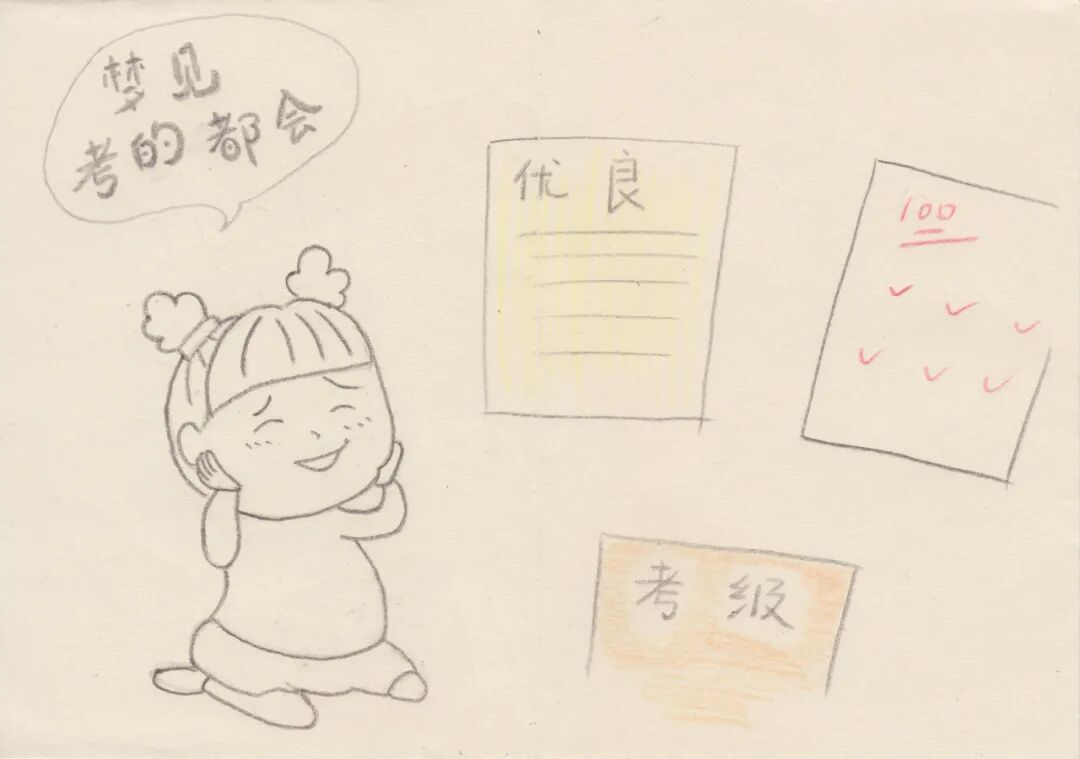 梦见
考的都会
优良
100
考级